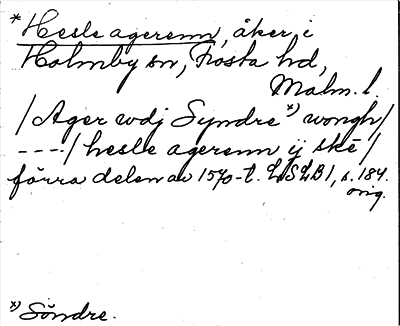 * Hesle agerenn, åker i
Holmby sn, Frosta hd,
Malm. l.
/ Ager wdj Syndre *) wongh /
---- / hesle agerenn ij skē /
förra delen av 1570-t. LSLB 1, s. 184.
orig.
*) Söndre.